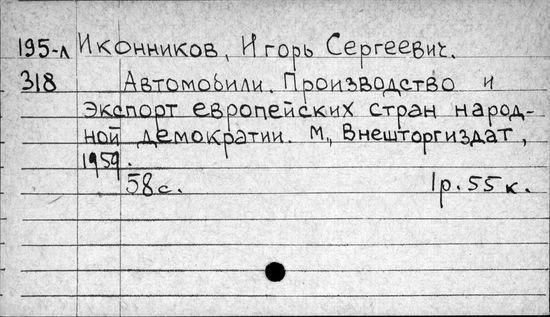 195-л Иконников, Игорь Сергеевич.
318 Автомобили. Производство и
экспорт европейских стран народ-
ной демократии. М., Внешторгиздат,
1959.
58с. 1р. 55 к.